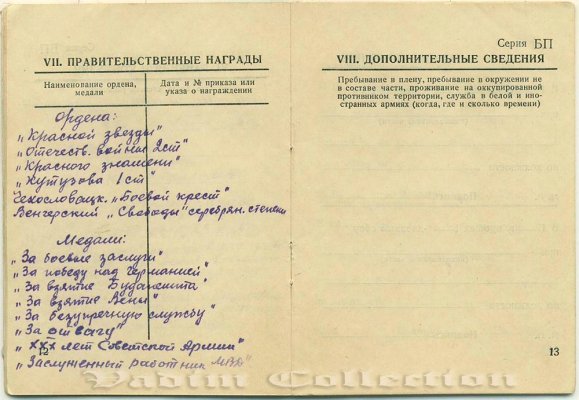 VII. ПРАВИТЕЛЬСТВЕННЫЕ НАГРАДЫ
Наименование ордена, медали
Дата и № приказа или указа о награждении
Ордена:
„Красной звезды"
„Отечеств. войны 2ст"
„Красного знамени"
„Кутузова 1ст"
Чехословацк. „Боевой крест"
Венгерский „Свободы" серебрян. степени
Медали:
„За боевые заслуги"
„За победу над Германией"
„За взятие Будапешта"
„За взятие Вены"
„За безупречную службу"
„За отвагу"
„XXX лет Советской Армии"
„Заслуженный работник МВД"
12
Серия БП
VIII. ДОПОЛНИТЕЛЬНЫЕ СВЕДЕНИЯ
Пребывание в плену, пребывание в окружении не
в составе части, проживание на оккупированной
противником территории, служба в белой и ино-
странных армиях (когда, где и сколько времени)
13
Vadim Collection